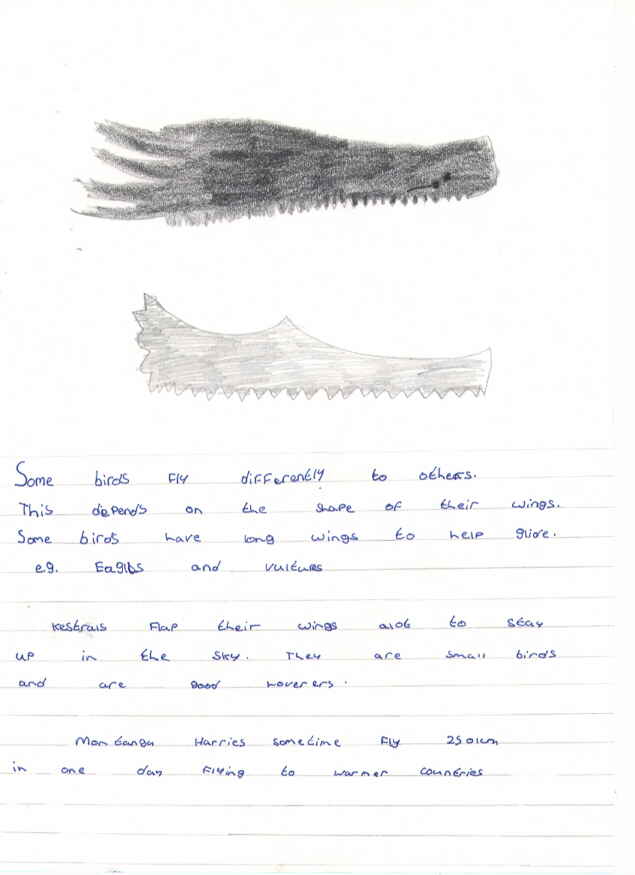 Some birds fly differently to others.
This depends on the shape of their wings.
Some birds have long wings to help glide.
e.g. Eagles and vulturs
kestrals flap their wings alot to stay
up in the sky. They are small birds
and are good hoverers.
Montangu Harries sometime fly 250km
in one day flying to warmer countries